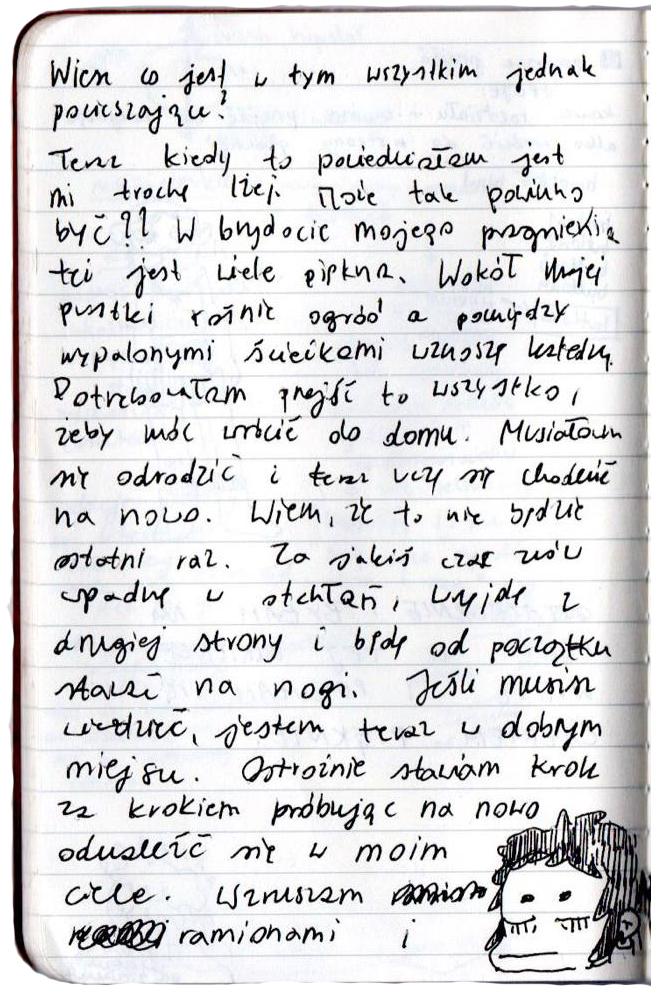 Wiesz co jest w tym wszystkim jednak
pocieszające?
Teraz kiedy to powiedziałam jest
mi trochę lżej. Może tak powinno
być?? W brzydocie mojego przgnięk
tej jest wiele piękna. Wokół mojej
pustki rośnie ogród a pomiędzy
wypalonymi ścieżkami wznoszę katedrę.
Potrzebowałam przejść to wszystko,
żeby móc wrócić do domu. Musiałam
się odrodzić i teraz uczę się chodzić
na nowo. Wiem, że to nie będzie
ostatni raz. Za jakiś czas znów
wpadnę w otchłań, wyjdę z
drugiej strony i będę od początku
stawać na nogi. Jeśli musisz
wiedzieć, jestem teraz w dobrym
miejscu. Ostrożnie stawiam krok
za krokiem próbując na nowo
odnaleźć się w moim
ciele. Wzruszam
ramionami i